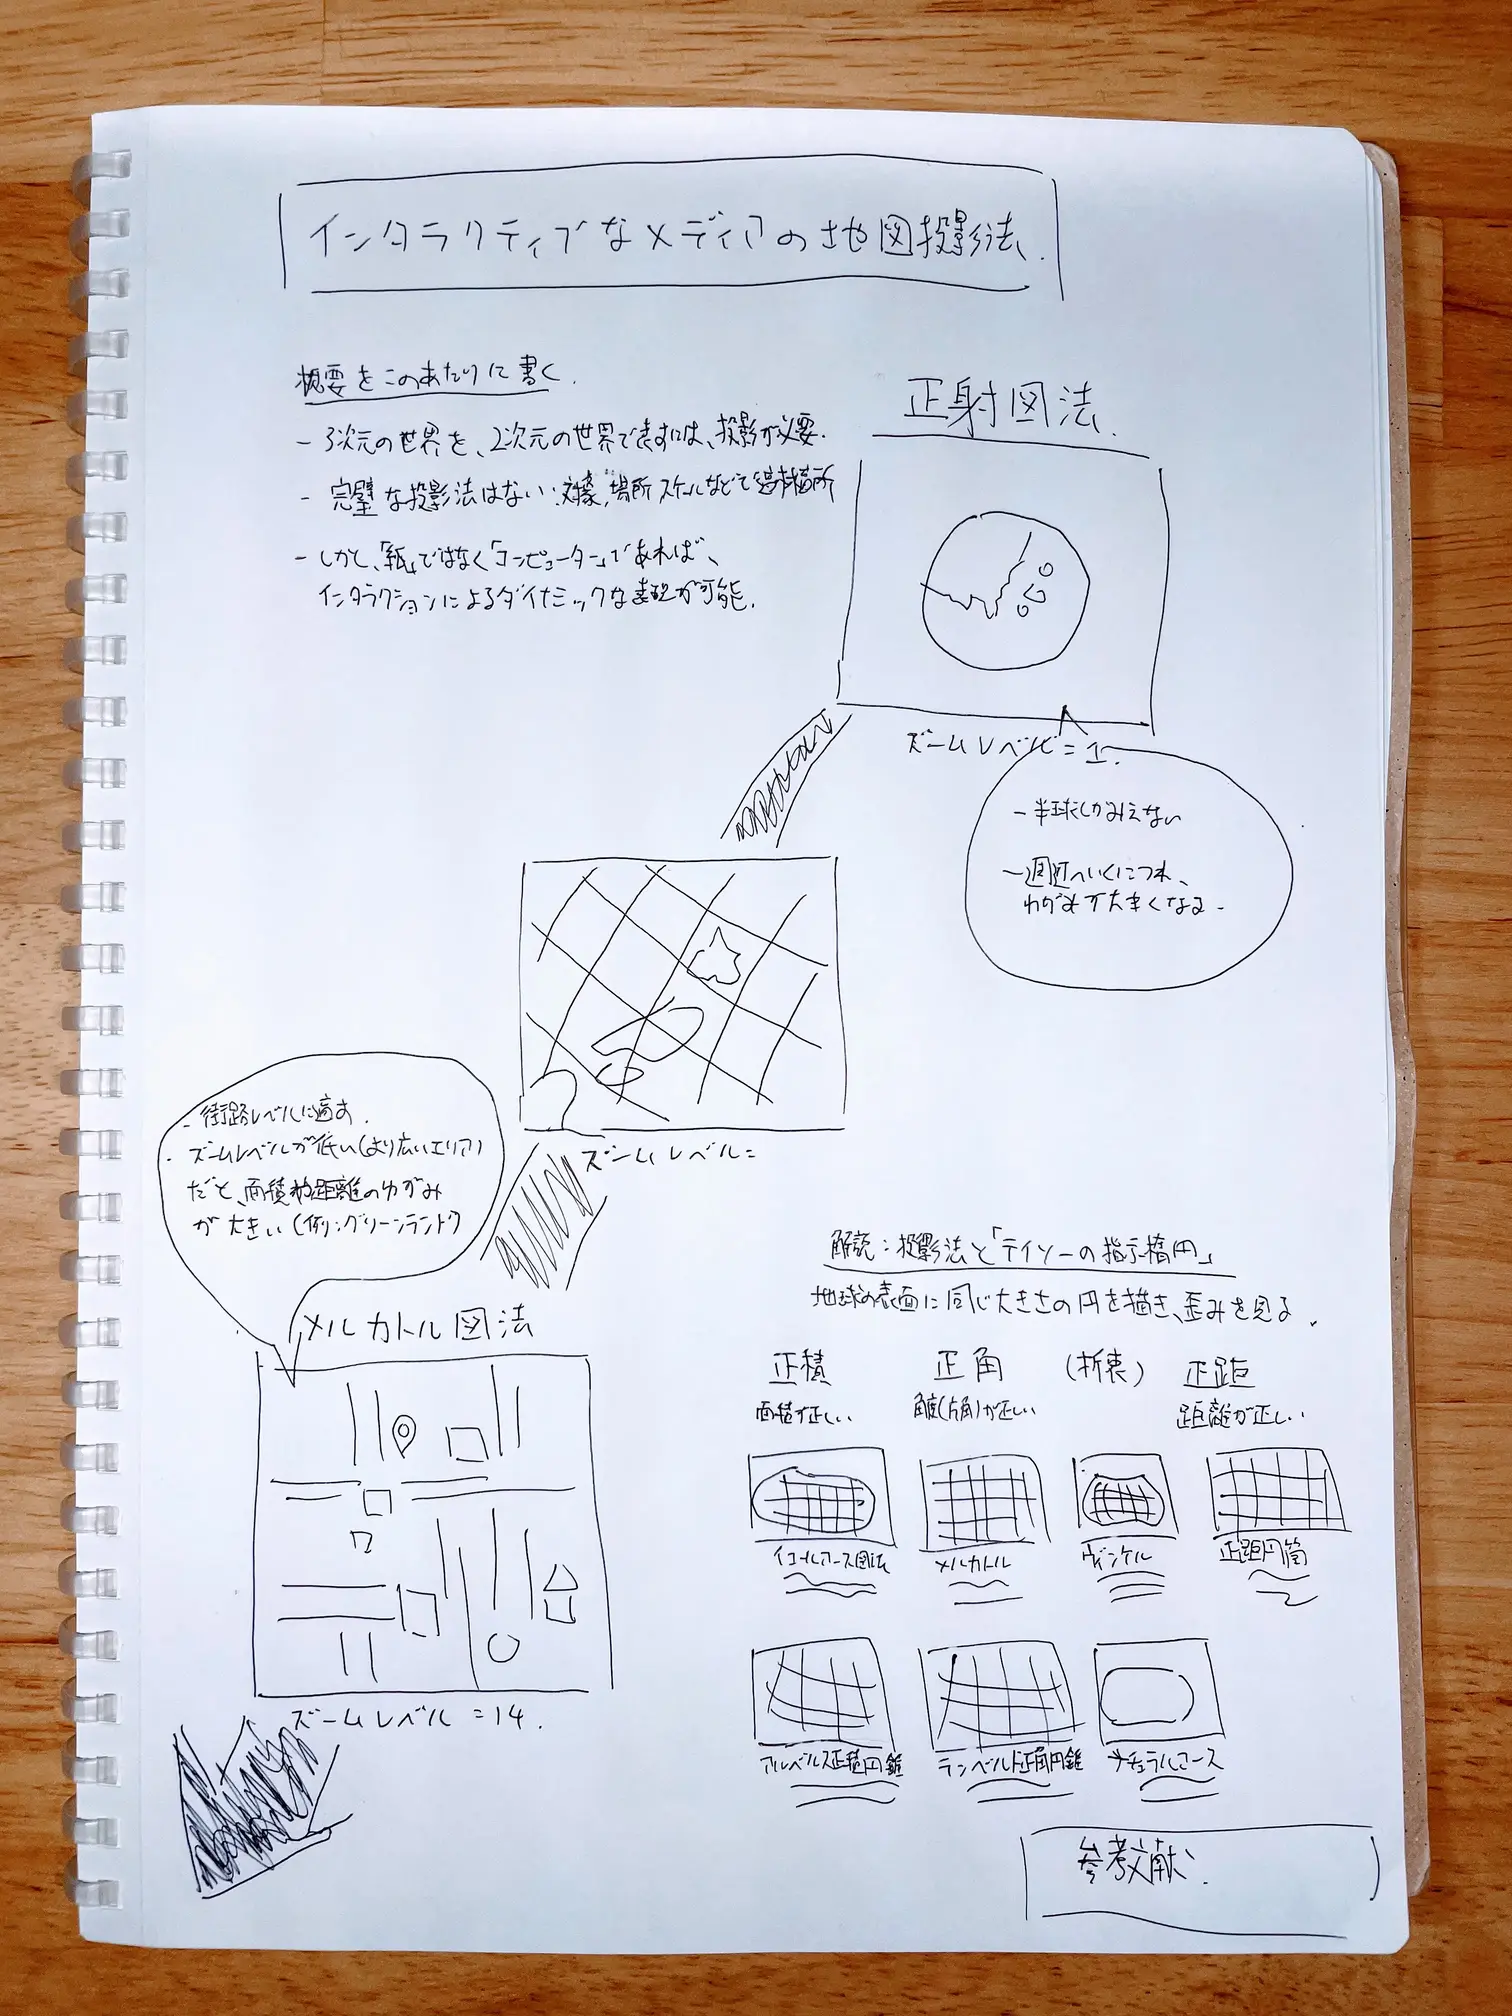 インタラクティブなメディアの地図投影法.
概要をこのあたりに書く.
- 3次元の世界を、2次元の世界で表すには、投影が必要.
- 完璧な投影法はない:対象,場所スケールなどで
- しかし、「紙」ではなく「コンピューター」であれば、
インタラクションによるダイナミックな表現が可能.
正射図法.
ズームレベル=1.
- 半球しかみえない
- 周辺へいくにつれ、
ゆがみが大きくなる-
ズームレベル=
- 街路レベルに適す.
- ズームレベルが低い(より広いエリア)
だと、面積や距離のゆがみ
が大きい(例:グリーンランド)
メルカトル図法
ズームレベル=14.
解説:投影法と「テイソーの指示楕円」
地球の表面に同じ大きさの円を描き、歪みを見る.
正積
面積が正しい
正角
角度(方角)が正しい
(折衷)
正距
距離が正しい
イコールアース図法
メルカトル
ヴィンケル
正距円筒
アルベルス正積円錐
ランベルト正角円錐
ナチュラルアース
参考文献.